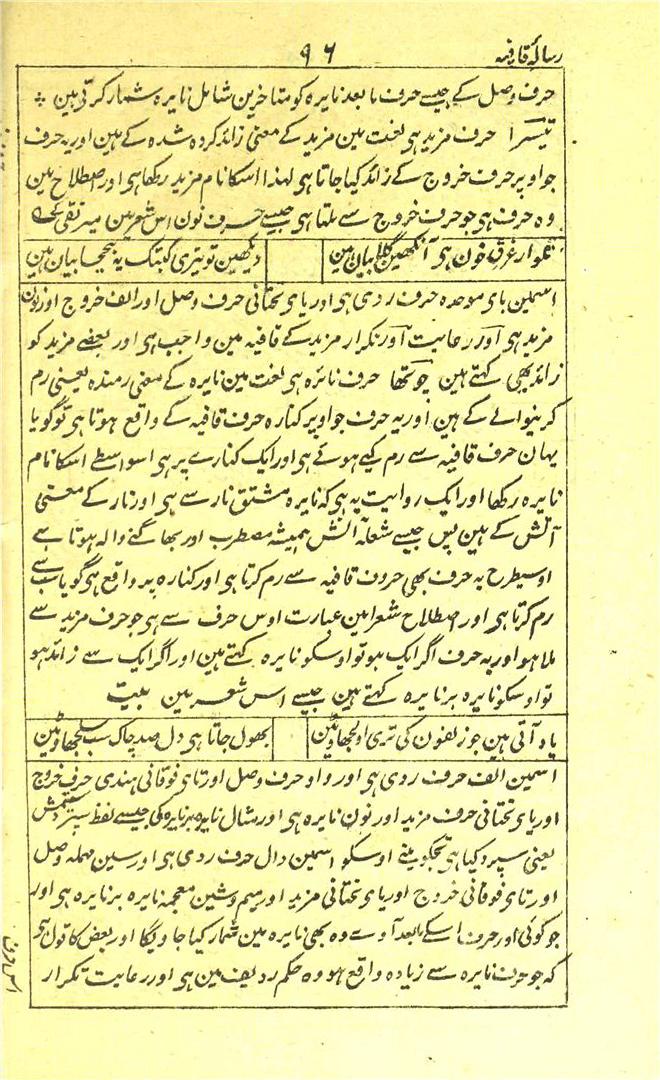 رسالۂ قافیہ ۹۶
حرف وصل کے جیسے حرف ما بعد نایرہ کو متاخرین شامل نایرہ شمار کرتی ہین
تیسرا حرف مزید ہی لغت مین مزید کے معنی زائد کردہ شدہ کے ہین اور یہ حرف
جو اوپر حرف خروج کے زائد کیا جاتا ہی لہذا اسکا نام مزید رکھا ہی اور اصطلاح مین
وہ حرف ہی جو حرف خروج سے ملتا ہی جیسے حرف نون اس شعر مین میر تقی کے
تلوار غرق خون ہی آنکھین گلابیان ہین دیکھین تو تیری کبتک یہ بیحجابیان ہین
اسمین بای موحدہ حرف ردی ہی اور یای تحتانی حرف وصل اور الف خروج اور نون
مزید ہی اور رعایت اور تکرار مزید کے قافیہ مین واجب ہی اور بعضے مزید کو
زائد بھی کہتے ہین چوتھا حرف نائرہ ہی لغت مین نایرہ کے معنی رمندہ یعنی رم
کرنیوالے کے ہین اور یہ حرف جو اوپر کنارہ حرف قافیہ کے واقع ہوتا ہی تو گویا
یہان حرف قافیہ سے رم کیے ہوئے ہی اور ایک کنارے پر ہی اسواسطے اسکا نام
نایرہ رکھا اور ایک روایت یہ ہی کہ نایرہ مشتق نار سے ہی اور نار کے معنی
آتش کے ہین پس جیسے شعلۂ آتش ہمیشہ مضطرب اور بھاگنے والا ہوتا ہے
اوسیطرح یہ حرف بھی حروف قافیہ سے رم کرتا ہی اور کنارہ پر واقع ہی گویا سب سے
رم کرتا ہی اور اصطلاح شعرا مین عبارت اوس حرف سے ہی جو حرف مزید سے
ملا ہو اور یہ حرف اگر ایک ہو تو اوسکو نایرہ کہتے ہین اور اگر ایک سے زائد ہو
تو اوسکو نایرہ بر نایرہ کہتے ہین جیسے اس شعر مین بیت
یاد آتی ہین جو زلفون کی تری اولجھاوٹین بھول جاتا ہی دل صد چاک سب سلجھاوٹین
اسمین الف حرف ردی ہی اور واو حرف وصل اور تای فوقانی ہندی حرف خروج
اور یای تحتانی حرف مزید اور نون نایرہ ہی اور مثال نایرہ بر نایرہ کی جیسے لفظ سپردستمش
یعنی سپرد کیا ہی تجکو مینے اوسکو اسمین دال حرف ردی ہی اور سین مہملہ وصل
اور تای فوقانی خروج اور یای تحتانی مزید اور میم و شین معجمہ نایرہ بر نایرہ ہی اور
جو کوئی اور حرف اسکے مابعد آوے وہ بھی نایرہ مین شمار کیا جاویگا اور بعض کا قول ہی
کہ جو حرف نایرہ سے زیادہ واقع ہو وہ حکم ردیف مین ہی اور رعایت تکرار
اس حرف